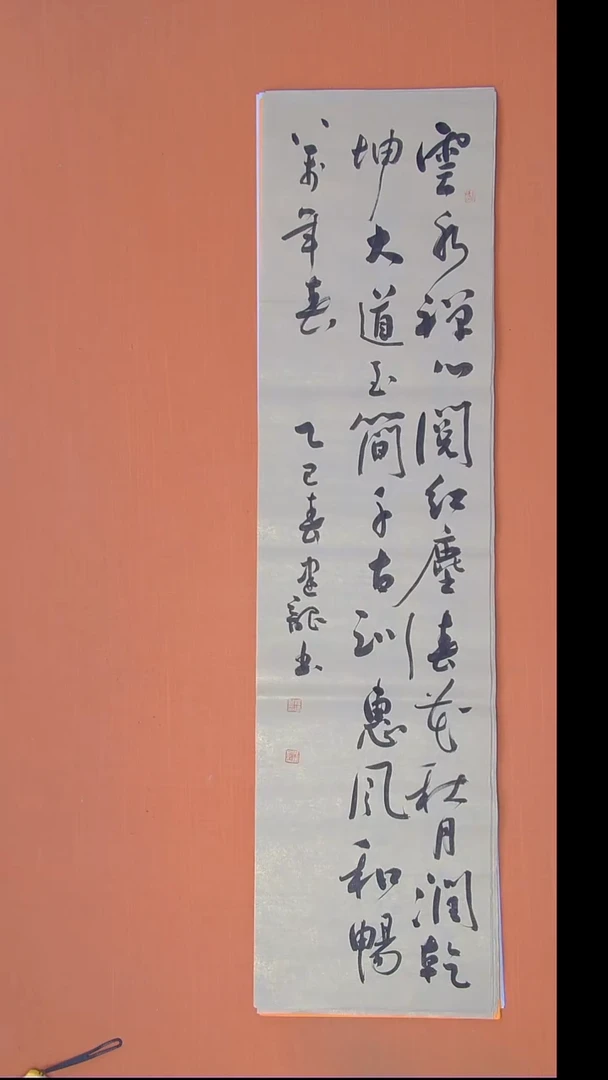 雲水禅心閲红塵春花秋月潤乾
坤大道玉簡千古訓惠風和暢
万年春
乙巳春建龍书